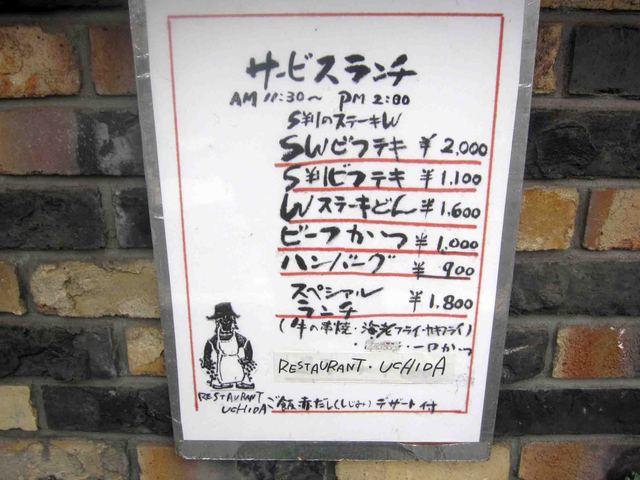 サービスランチ
AM 11:30～ PM 2:00
S判のステーキW
SWビフテキ ¥2,000
S判ビフテキ ¥1,100
Wステーキどん ¥1,600
ビーフかつ ¥1,000
ハンバーグ ¥900
スペシャル
ランチ ¥1,800
(牛の串焼・海老フライ・カキフライ)
・一口かつ
RESTAURANT・UCHIDA
RESTAURANT
UCHIDA
ご飯 赤だし(しじみ) デザート付